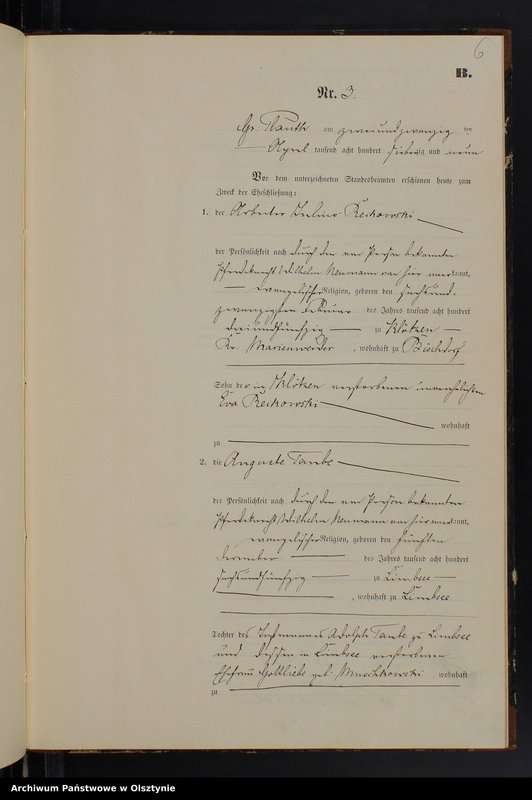 6
B.
Nr. 3.
Gr. Plauth am zweiundzwanzig ten
April tausend acht hundert siebenzig und neun
Vor dem unterzeichneten Standesbeamten erschienen heute zum
Zweck der Eheschließung:
1. der Arbeiter Julius Reikowski
der Persönlichkeit nach durch den von Person bekannten
Pferdeknecht Wilhelm Neumann von hier anerkannt,
evangelischer Religion, geboren den
zwanzigsten Februar des Jahres tausend acht hundert
dreiundfünfzig zu Klötzen
Kr. Marienwerder, wohnhaft zu Bischdorf
Sohn der in Klötzen verstorbenen unverehelichten
Eva Reikowski
wohnhaft
zu
2. die Auguste Taube
der Persönlichkeit nach durch den von Person bekannten
Pferdeknecht Wilhelm Neumann von hier anerkannt,
evangelischer Religion, geboren den fünften
December des Jahres tausend acht hundert
sechsundfünfzig zu Limbsee
, wohnhaft zu Limbsee
Tochter des Instmannes Adolph Taube zu Limbsee
und dessen in Limbsee verstorbene
Ehefrau Gottliebe geb. Muschkowski wohnhaft
zu
Archiwum Państwowe w Olsztynie